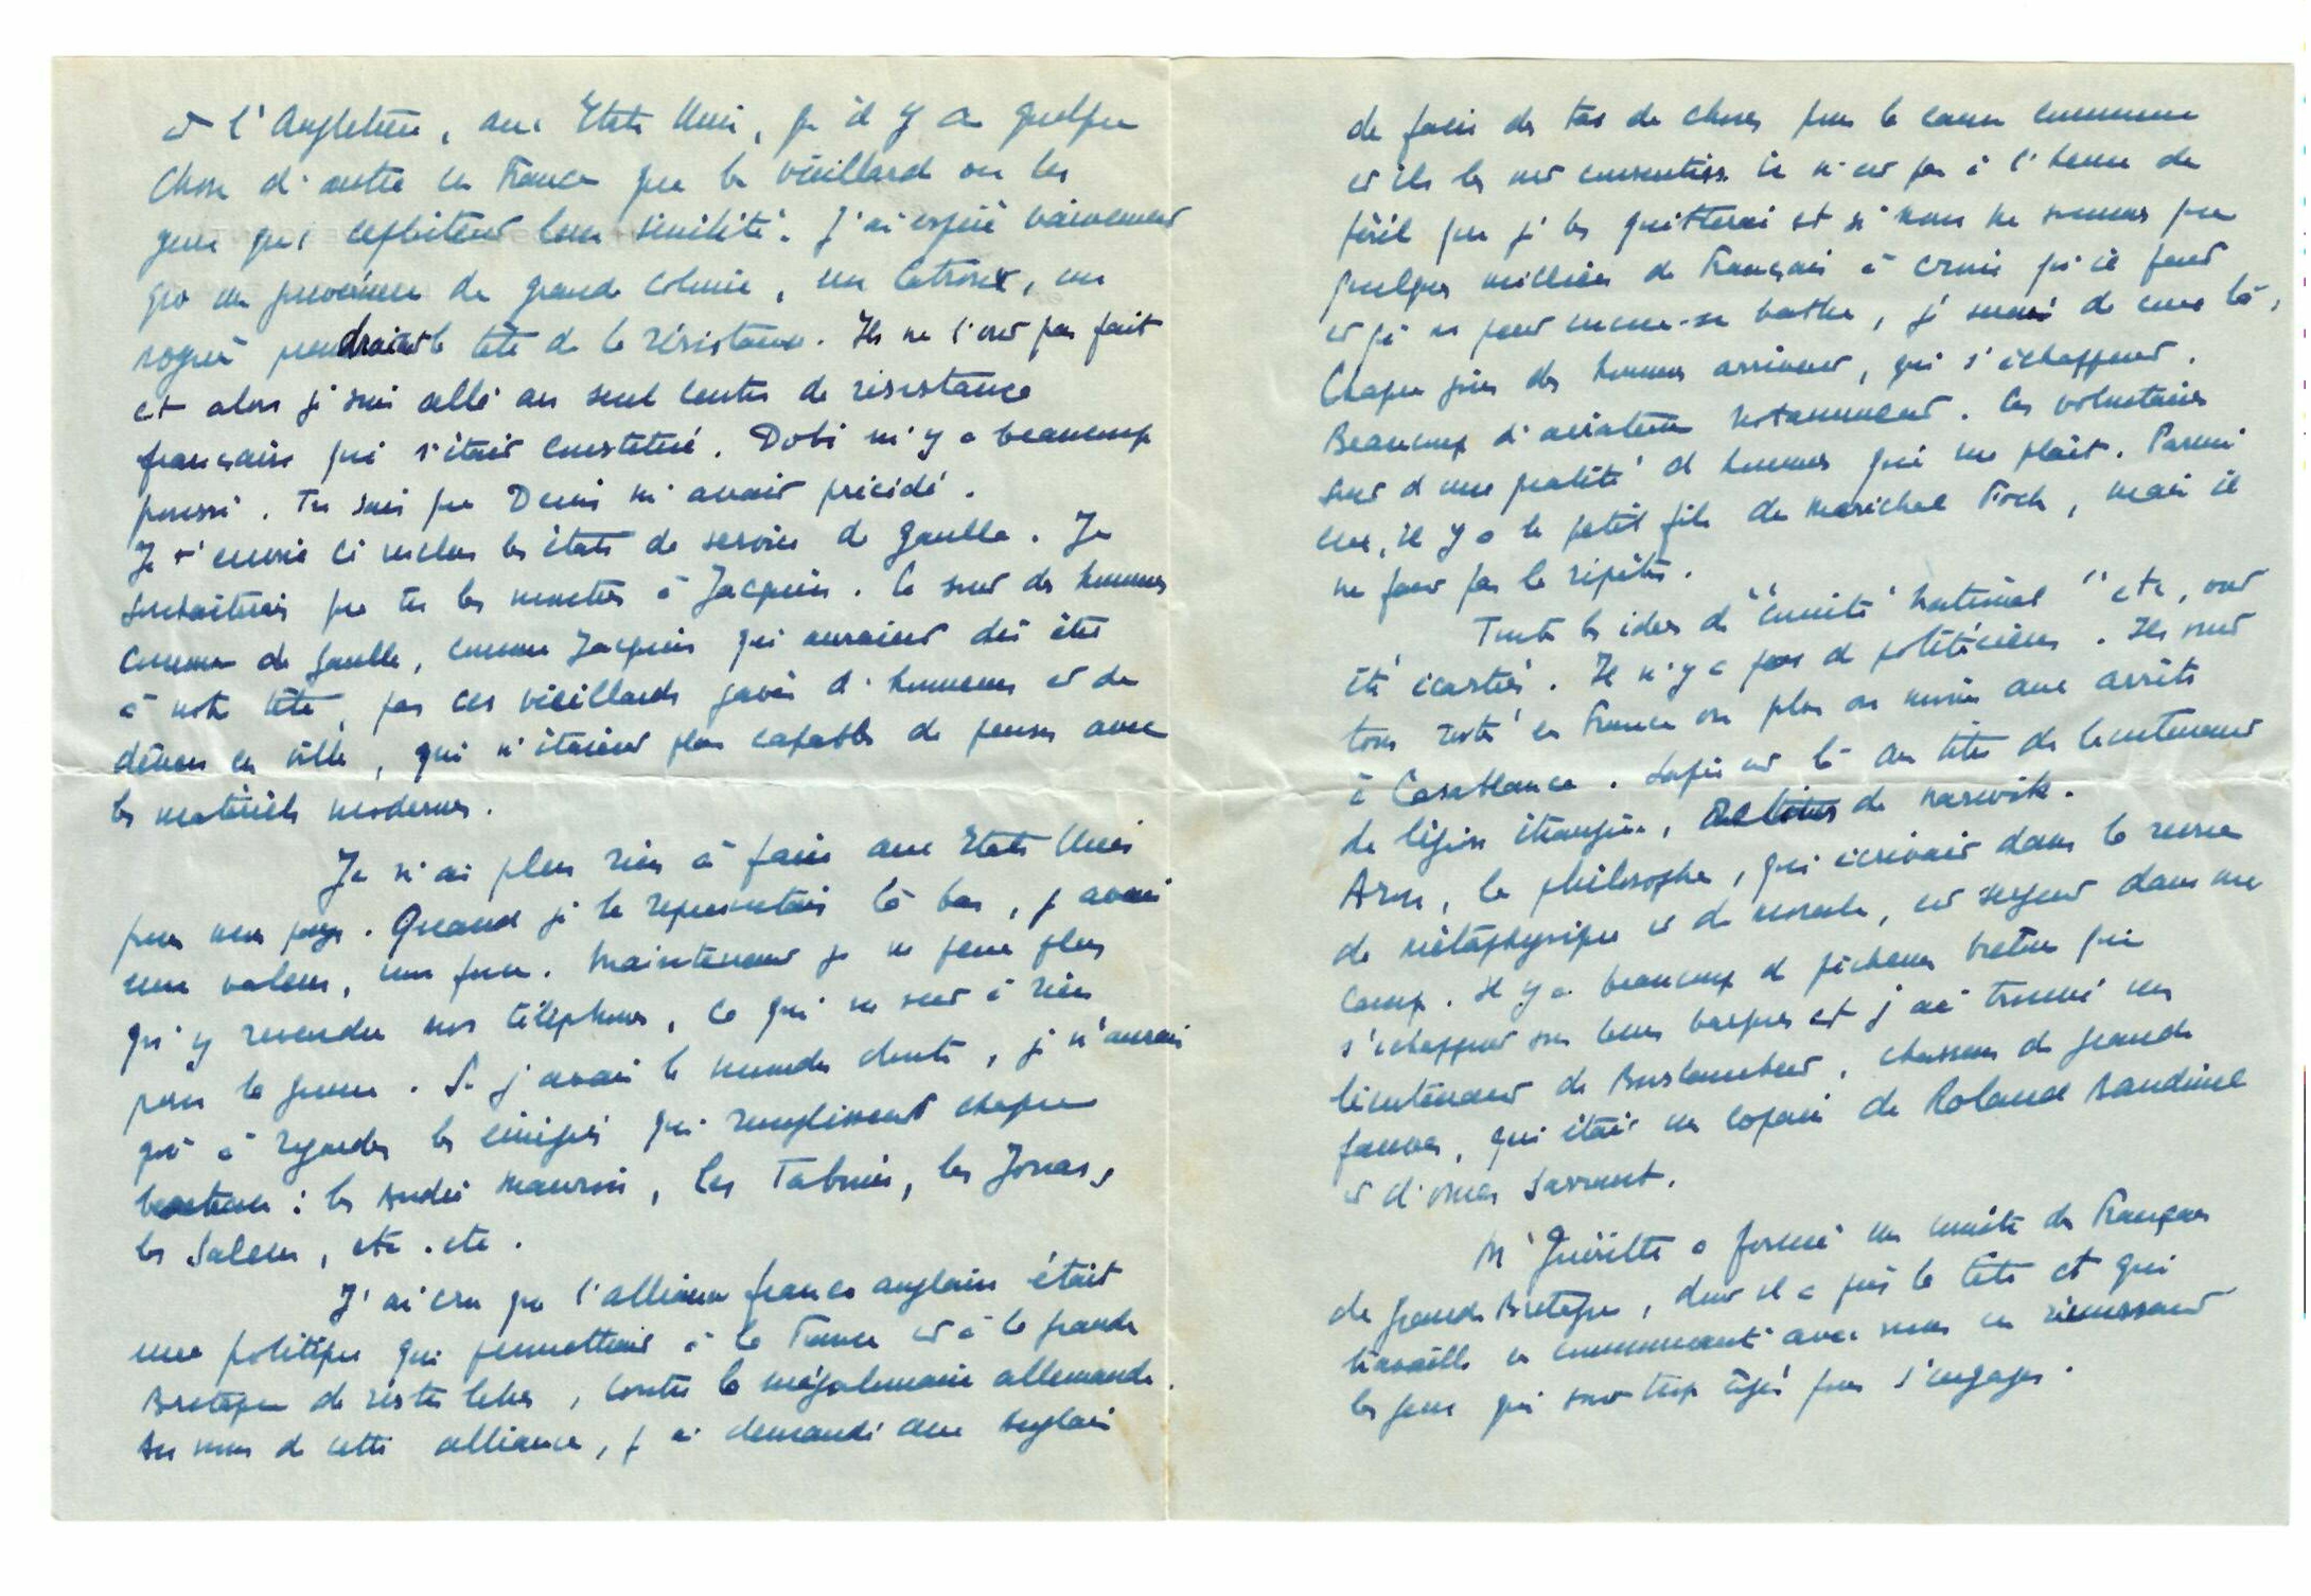 et l'Angleterre, aux Etats Unis, qu'il y a quelque
chose d'autre en France que le vieillard ou les
gens qui exploitent leur sénilité. J'ai espéré vainement
qu'un gouverneur de grande colonie, un Catroux, un
Noguès prendraient la tête de la résistance. Ils ne l'ont pas fait
et alors je suis allé au seul centre de résistance
française qui s'était constitué. Dobi m'y a beaucoup
poussé. Tu sais que Denis m'avait précédé.
Je t'envoie ci inclus les états de service de Gaulle. Je
souhaiterais que tu les montres à Jacquin. Ce sont des hommes
comme de Gaulle, comme Jacquin qui auraient dû être
à notre tête, pas ces vieillards gavés d'honneurs et de
dîners en ville, qui n'étaient plus capables de penser avec
les matériels modernes.
Je n'ai plus rien à faire aux Etats Unis
pour mon pays. Quand je le représentais là bas, j'avais
une valeur, une force. Maintenant je ne peux plus
qu'y revendre nos téléphones, ce qui ne sert à rien
pour la guerre. Si j'avais le moindre doute, je n'aurais
qu'à regarder les émigrés qui remplissent chaque
bateau : les André Maurois, les Tabouis, les Jonas,
les Salem, etc. etc.
J'ai cru que l'alliance franco anglaise était
une politique qui permettrait à la France et à la Grande
Bretagne de rester libres, contre la mégalomanie allemande.
Au nom de cette alliance, j'ai demandé aux Anglais
de faire des tas de choses pour la cause commune
et ils les ont consenties. Ce n'est pas à l'heure du
péril que je les quitterai et si nous ne sommes que
quelques milliers de Français à croire qu'il faut
et qu'on peut encore se battre, je serai de ceux là.
Chaque jour des hommes arrivent, qui s'échappent.
Beaucoup d'aviateurs notamment. Ces volontaires
sont d'une qualité d'hommes qui me plait. Parmi
eux, il y a le petit fils du Maréchal Foch, mais il
ne faut pas le répéter.
Toutes les idées de "comité national" etc, ont
été écartées. Il n'y a pas de politiciens. Ils sont
tous restés en France ou plus ou moins aux arrêts
à Casablanca. Lapie est là au titre de lieutenant
de légion étrangère, de Narvik.
Aron, le philosophe, qui écrivait dans la revue
de métaphysique et de morale, est sergent dans un
camp. Il y a beaucoup de pêcheurs bretons qui
s'échappent sur leurs barques et j'ai trouvé un
lieutenant de Boislambert, chasseur de grands
fauves, qui était un copain de Roland
et d'Omer Sarraut.
Mr Guéritte a formé un comité des Français
de Grande Bretagne, dont il a pris la tête et qui
travaille en communauté avec nous en réunissant
les gens qui sont trop âgés pour s'engager.